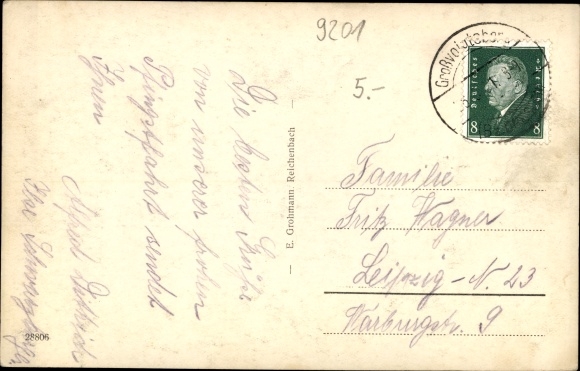 9201
5.-
Die besten Grüße
von unserer frohen
Pfingstfahrt sendet
Ihnen
Alfred
Ihre
E. Grohmann, Reichenbach
Großvoigtsberg
Deutsches Reich
8 8
Familie
Fritz Wagner
Leipzig - N. 23
Warburgstr. 9
28806